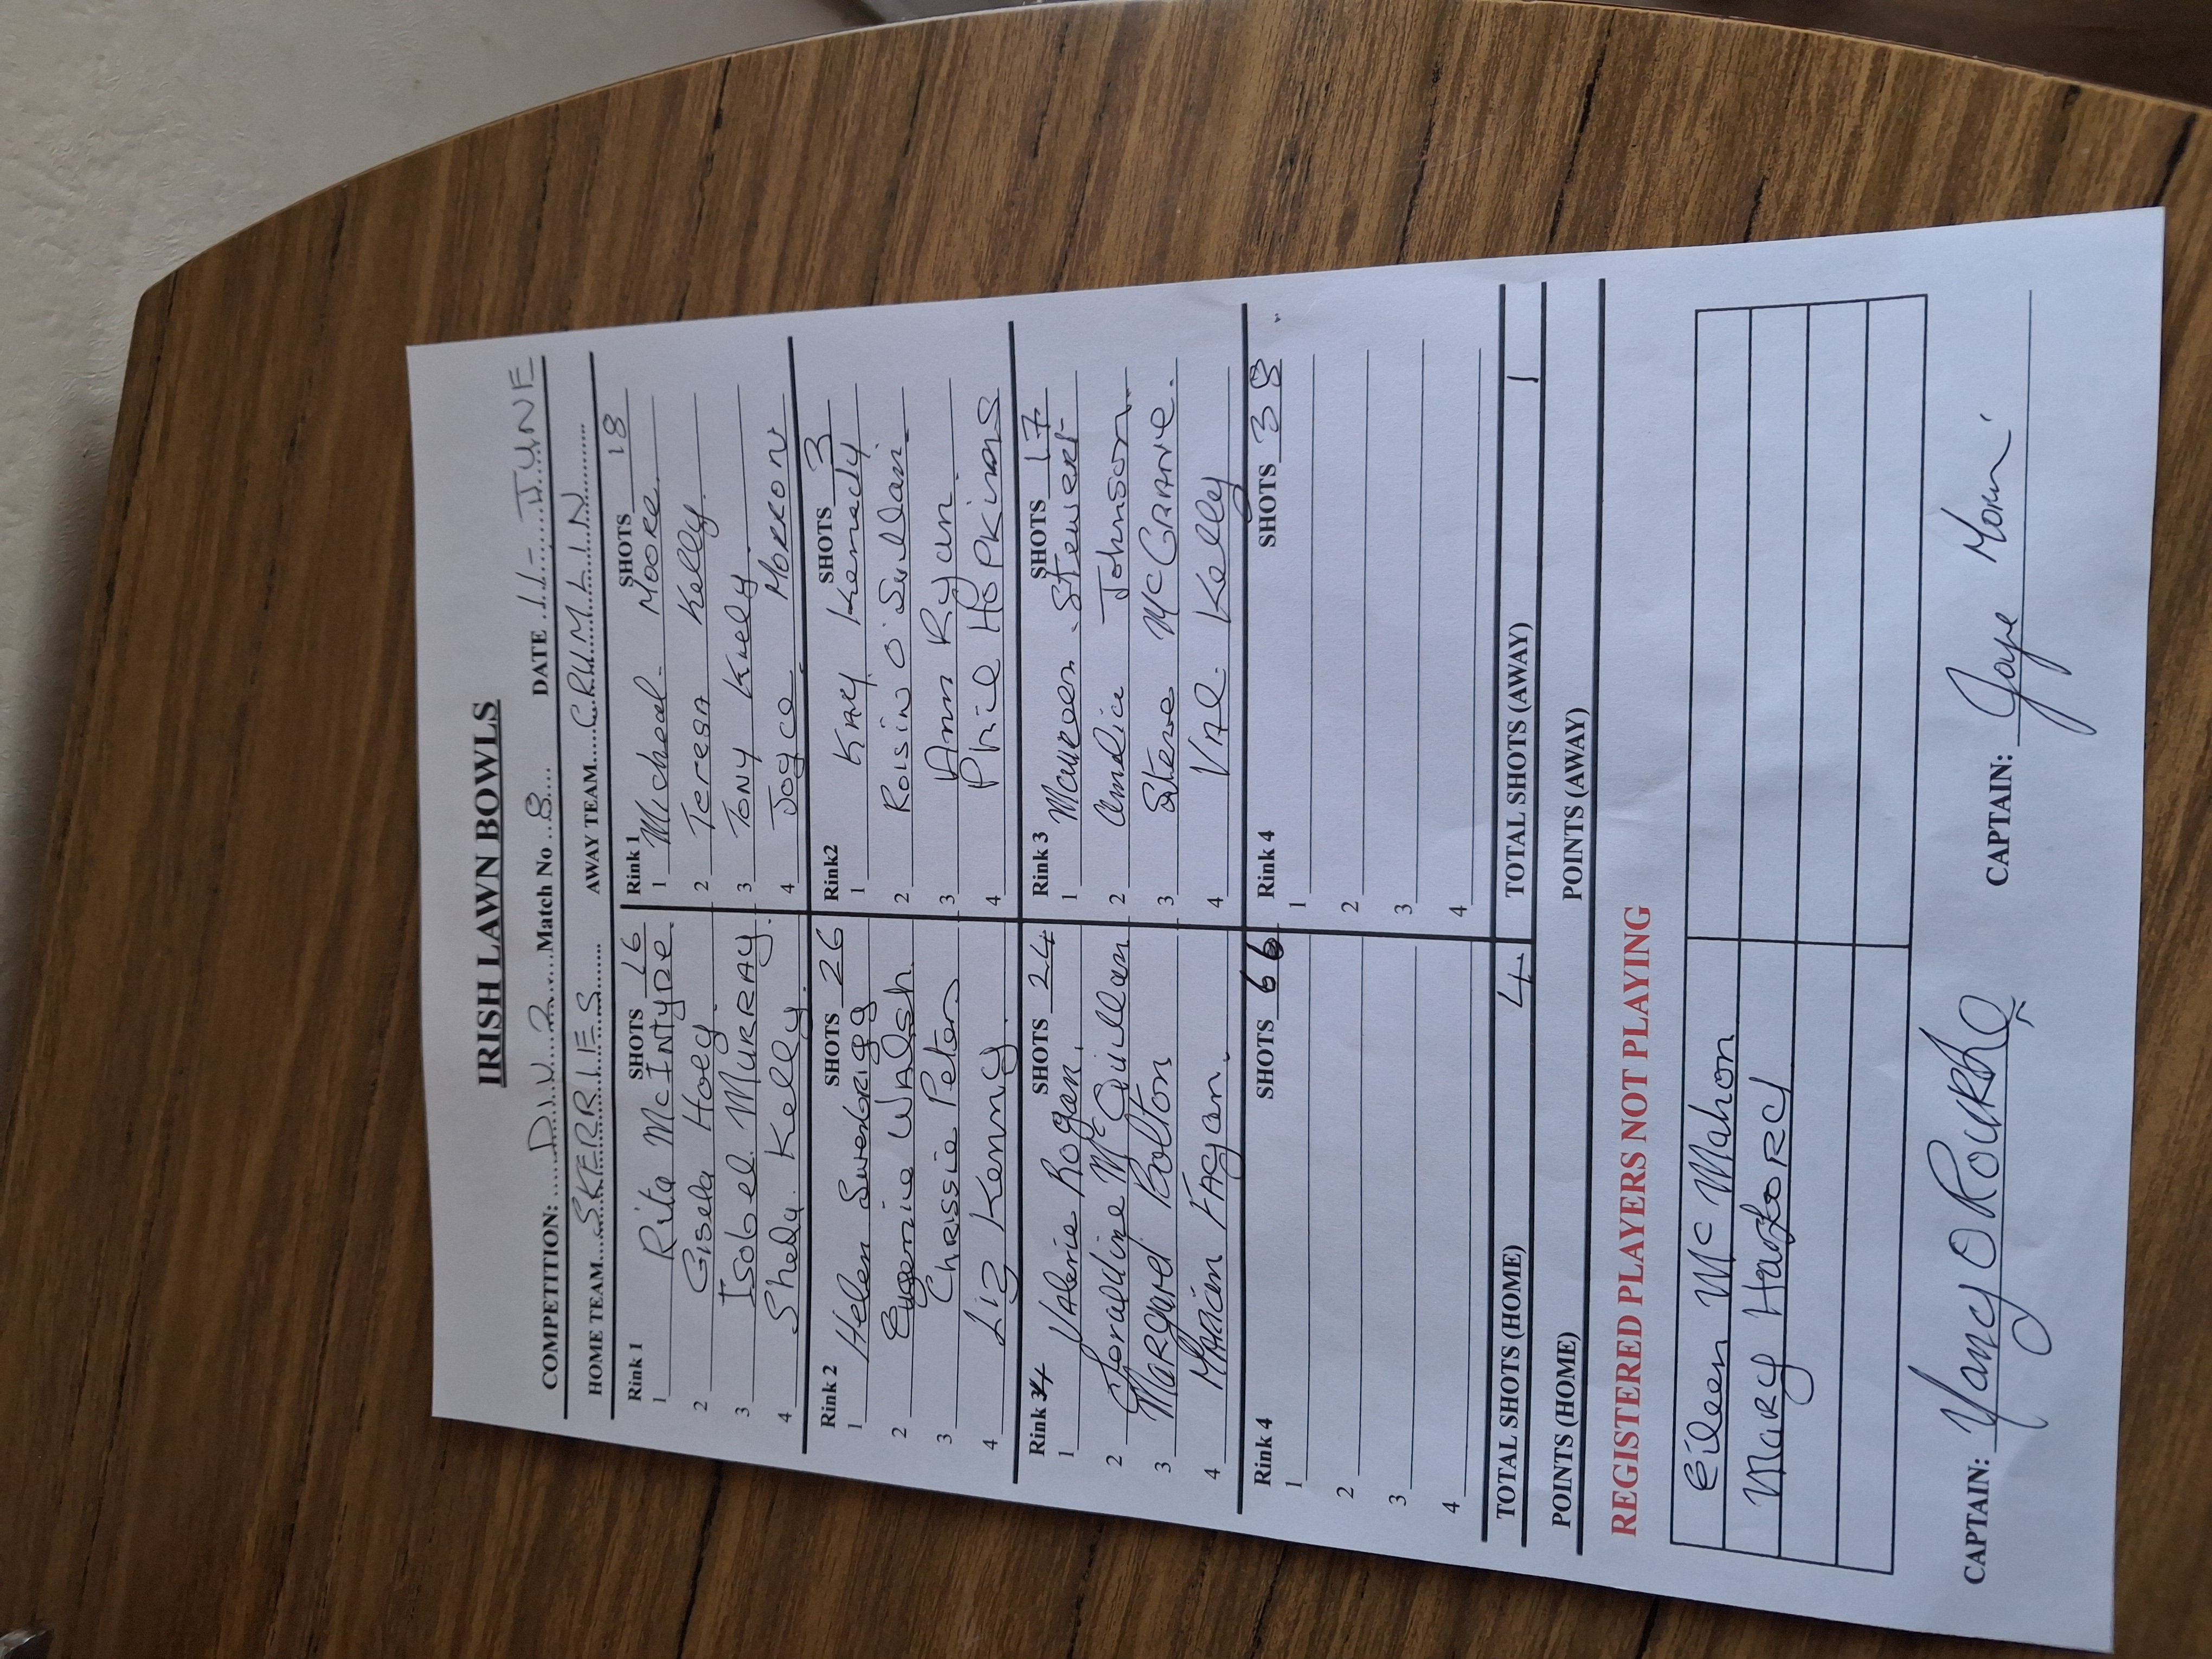 IRISH LAWN BOWLS
COMPETITION: ....DIV. 2....Match No ..8.... DATE ..11-..JUNE
HOME TEAM...SKERRIES......... AWAY TEAM....CRUMLIN.........
Rink 1 SHOTS 16 Rink 1 SHOTS 18
1 Rita McIntyre. 1 Micheal. Moore.
2 Gisela Hoey. 2 Teresa Kelly.
3 Isobel. Murray. 3 Tony Kiely.
4 Shela. Kelly. 4 Joyce. Morron
Rink 2 SHOTS 26 Rink2 SHOTS 3
1 Helen Swenbrigg 1 Kay. Kennedy.
2 Eugenie Walsh. 2 Roisin O'Sullivan.
3 Chrissie Peters 3 Ann Ryan.
4 Liz Kenny. 4 Phil Hopkins
Rink 4 SHOTS 24 Rink 3 SHOTS 17
1 Valerie Rogan. 1 Maureen. Stewart
2 Geraldine McQuillan 2 Amelia Johnson.
3 Margaret Bolton 3 Steve McGrane.
4 Marian Fagan. 4 Val. Kelly
Rink 4 SHOTS 66 Rink 4 SHOTS 38
1 1
2 2
3 3
4 4
TOTAL SHOTS (HOME) 4 TOTAL SHOTS (AWAY) 1
POINTS (HOME) POINTS (AWAY)
REGISTERED PLAYERS NOT PLAYING
Eileen McMahon
Mary
CAPTAIN: Nancy O Rourke CAPTAIN: Joyce